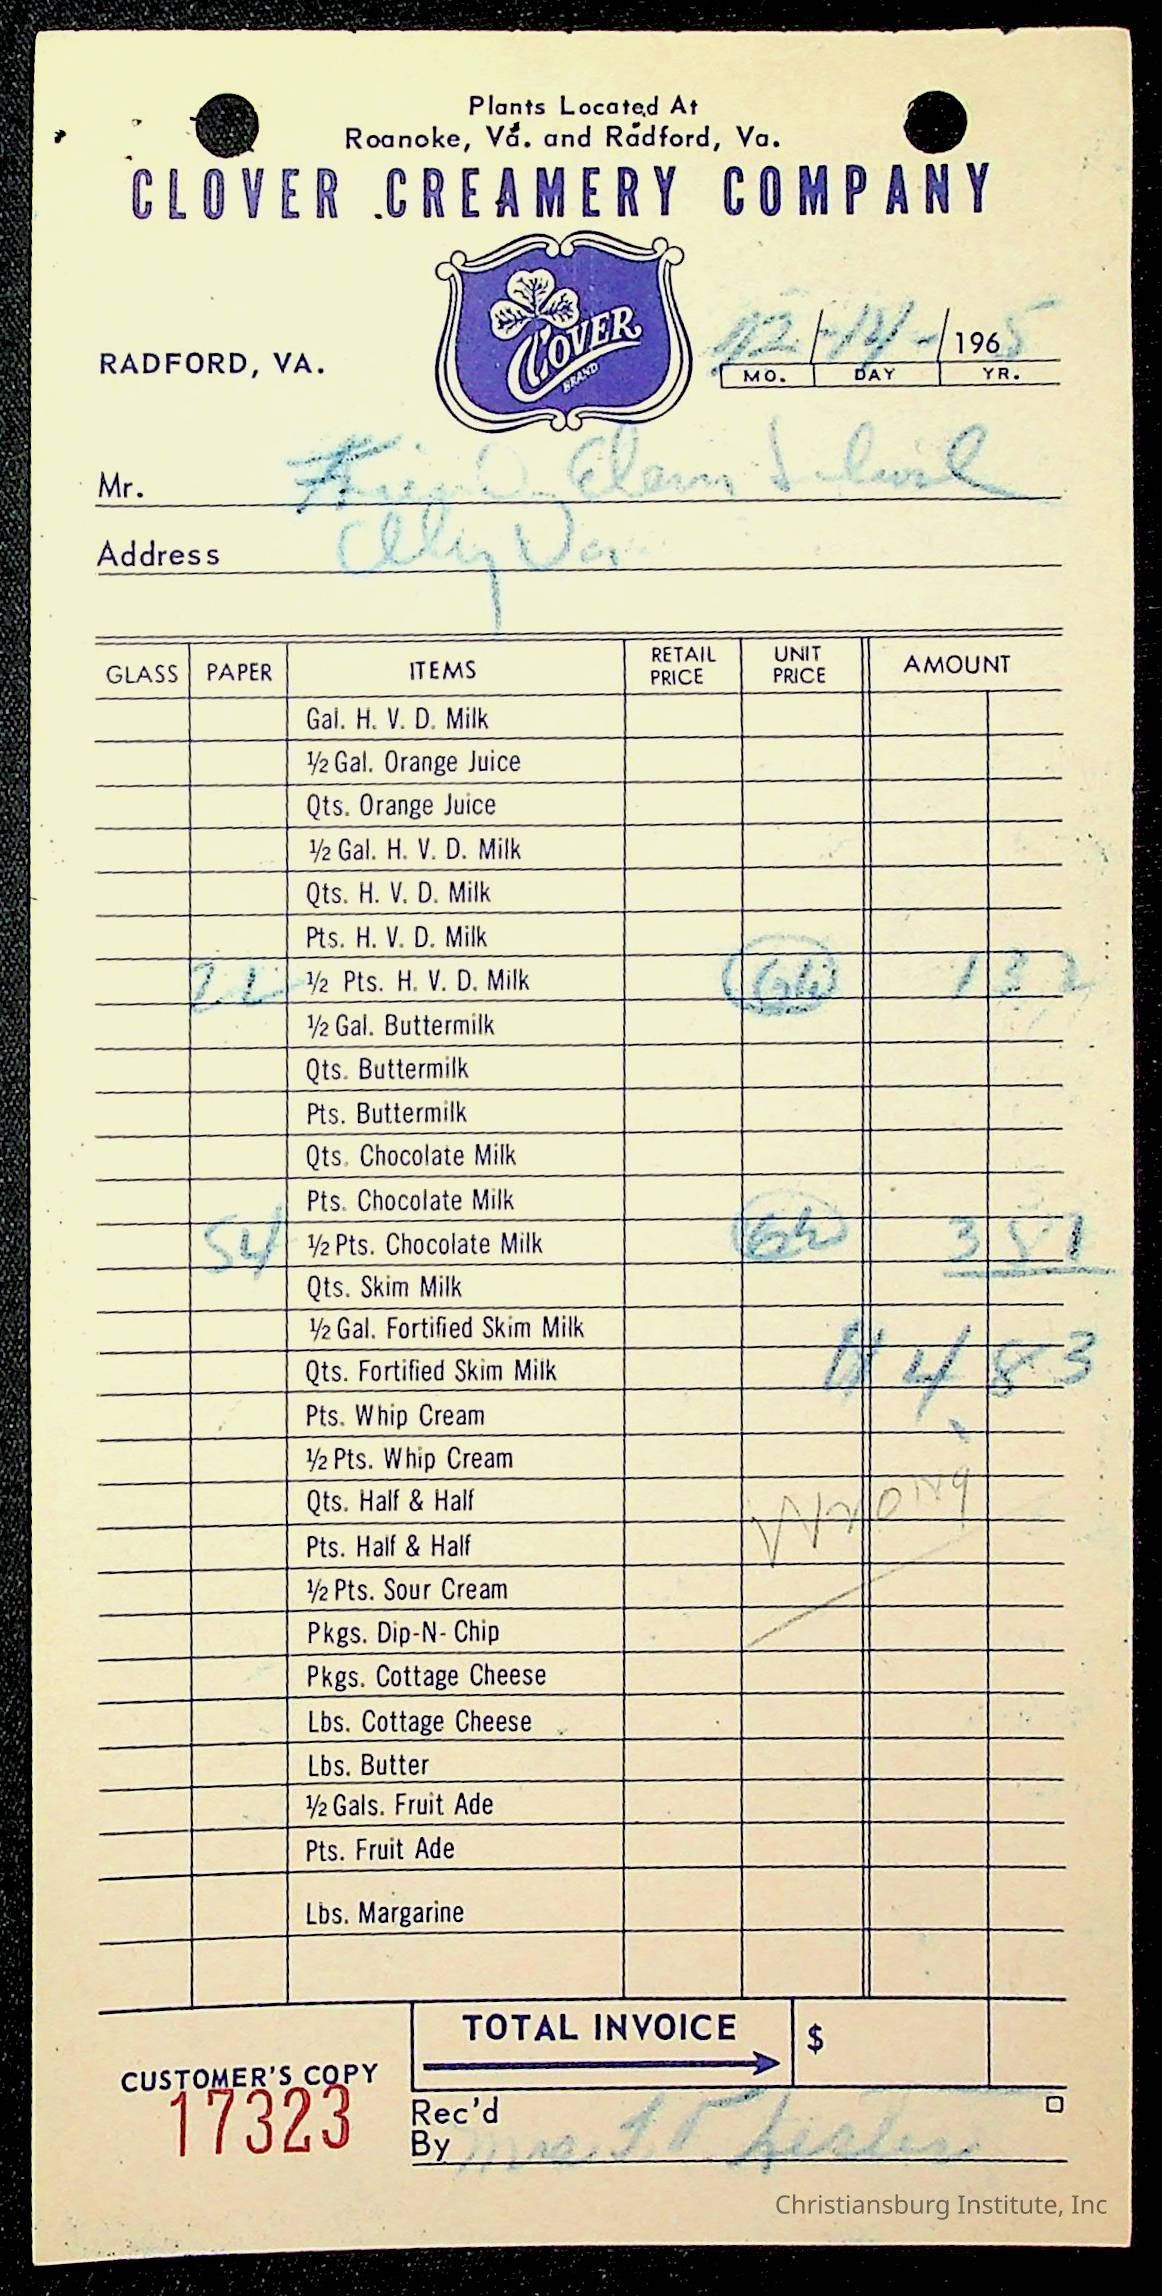 Plants Located At
Roanoke, Va. and Radford, Va.
CLOVER CREAMERY COMPANY
CLOVER
BRAND
RADFORD, VA.
12-14-1965
MO. DAY YR.
Mr. Elem School
Address
GLASS PAPER ITEMS RETAIL PRICE UNIT PRICE AMOUNT
Gal. H. V. D. Milk
½ Gal. Orange Juice
Qts. Orange Juice
½ Gal. H. V. D. Milk
Qts. H. V. D. Milk
Pts. H. V. D. Milk
22 ½ Pts. H. V. D. Milk 1 32
½ Gal. Buttermilk
Qts. Buttermilk
Pts. Buttermilk
Qts. Chocolate Milk
Pts. Chocolate Milk
54 ½ Pts. Chocolate Milk 3 51
Qts. Skim Milk
½ Gal. Fortified Skim Milk
Qts. Fortified Skim Milk 4 83
Pts. Whip Cream
½ Pts. Whip Cream
Qts. Half & Half Wrong
Pts. Half & Half
½ Pts. Sour Cream
Pkgs. Dip-N-Chip
Pkgs. Cottage Cheese
Lbs. Cottage Cheese
Lbs. Butter
½ Gals. Fruit Ade
Pts. Fruit Ade
Lbs. Margarine
TOTAL INVOICE $
CUSTOMER'S COPY
17323
Rec'd
By Mrs.
Christiansburg Institute, Inc